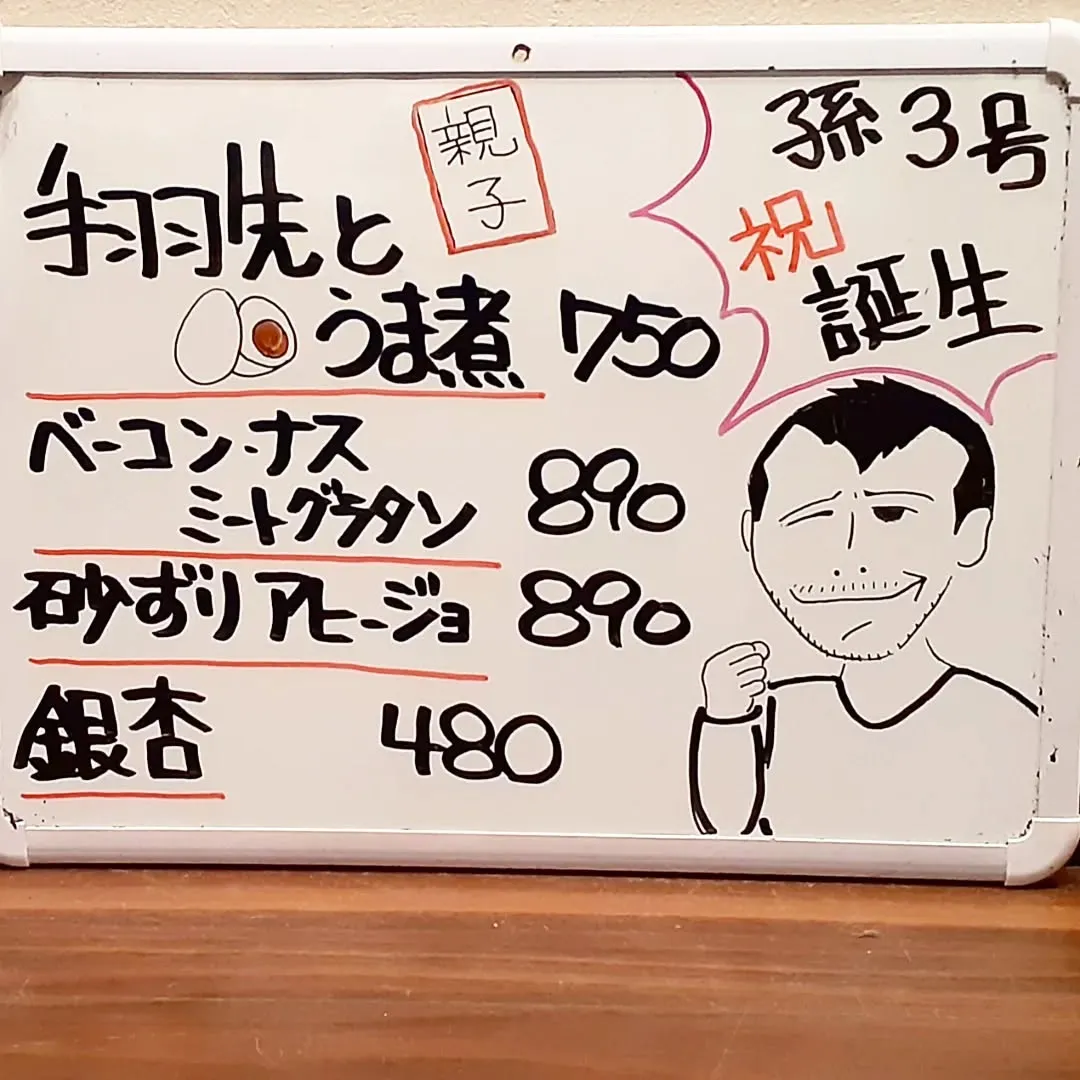 親子
手羽先と
うま煮 750
ベーコン・ナス
ミートグラタン 890
砂ずりアヒージョ 890
銀杏 480
孫3号
祝
誕生